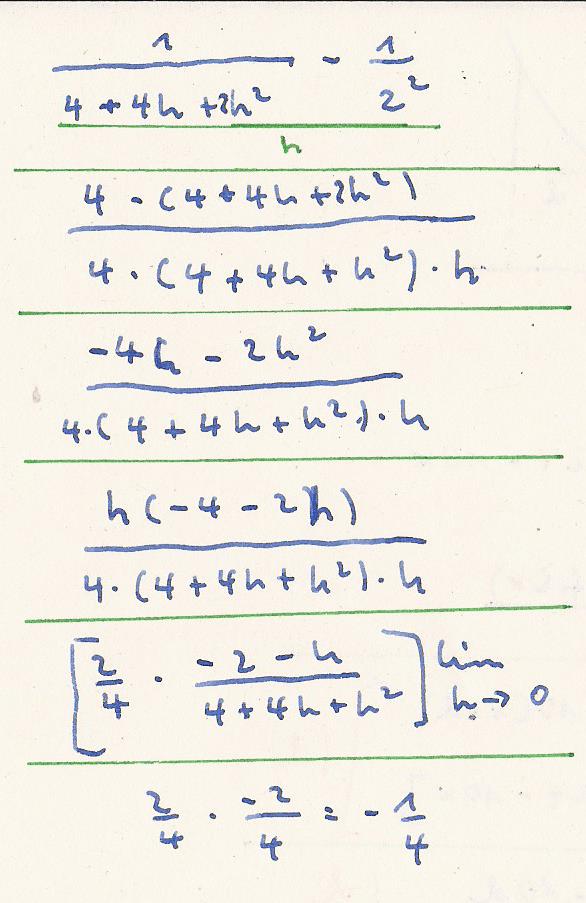 1/(4 + 4h + 2h²) - 1/2²
h
4 - (4 + 4h + 2h²)
4 · (4 + 4h + h²) · h
-4h - 2h²
4·(4 + 4h + h²) · h
h(-4 - 2h)
4·(4 + 4h + h²) · h
[2/4 · (-2 - h)/(4 + 4h + h²)] lim h→0
2/4 · -2/4 = -1/4